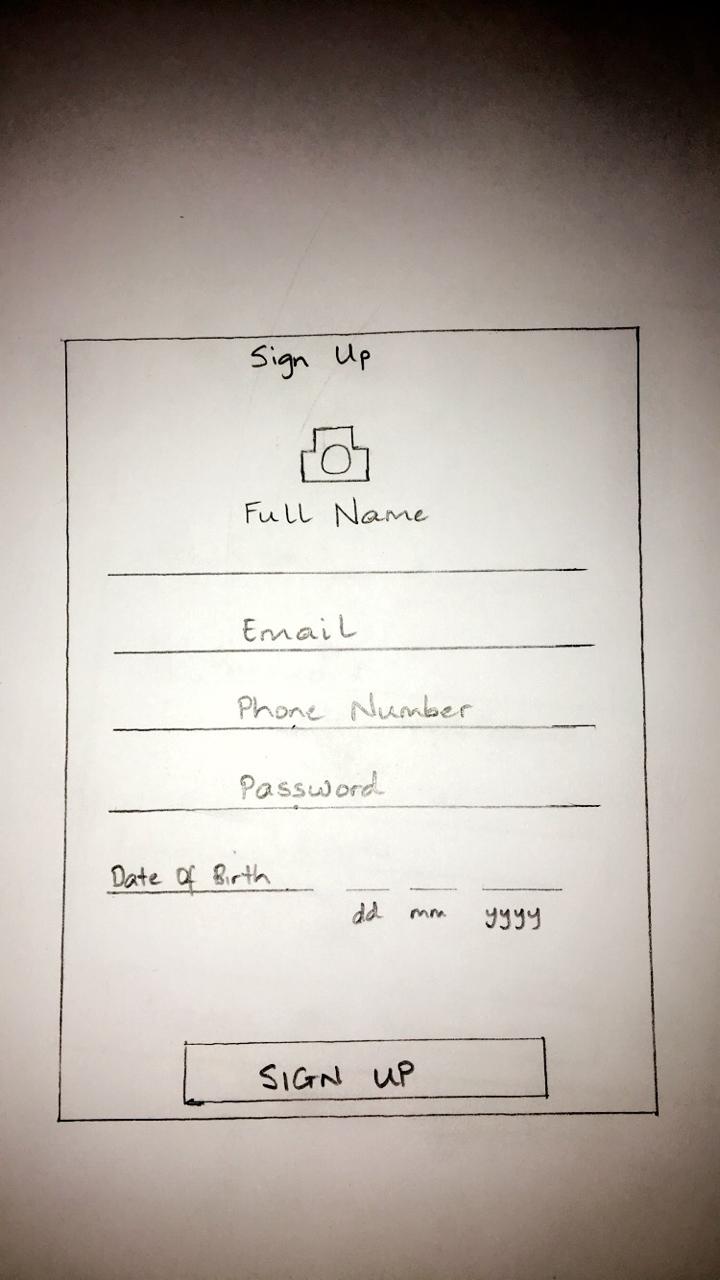 Sign Up
Full Name
Email
Phone Number
Password
Date Of Birth
dd mm yyyy
SIGN UP